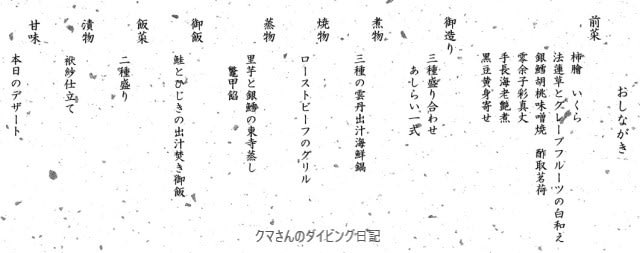 おしながき
前菜
柿膾 いくら
法蓮草とグレープフルーツの白和え
銀鱈胡桃味噌焼 酢取茗荷
零余子彩真丈
手長海老艶煮
黒豆黄身寄せ
御造り
三種盛り合わせ
あしらい一式
煮物
三種の雲丹出汁海鮮鍋
焼物
ローストビーフのグリル
蒸物
里芋と銀鱈の東寺蒸し
鼈甲餡
御飯
鮭とひじきの出汁焚き御飯
飯菜
二種盛り
漬物
袱紗仕立て
甘味
本日のデザート
クマさんのダイビング日記